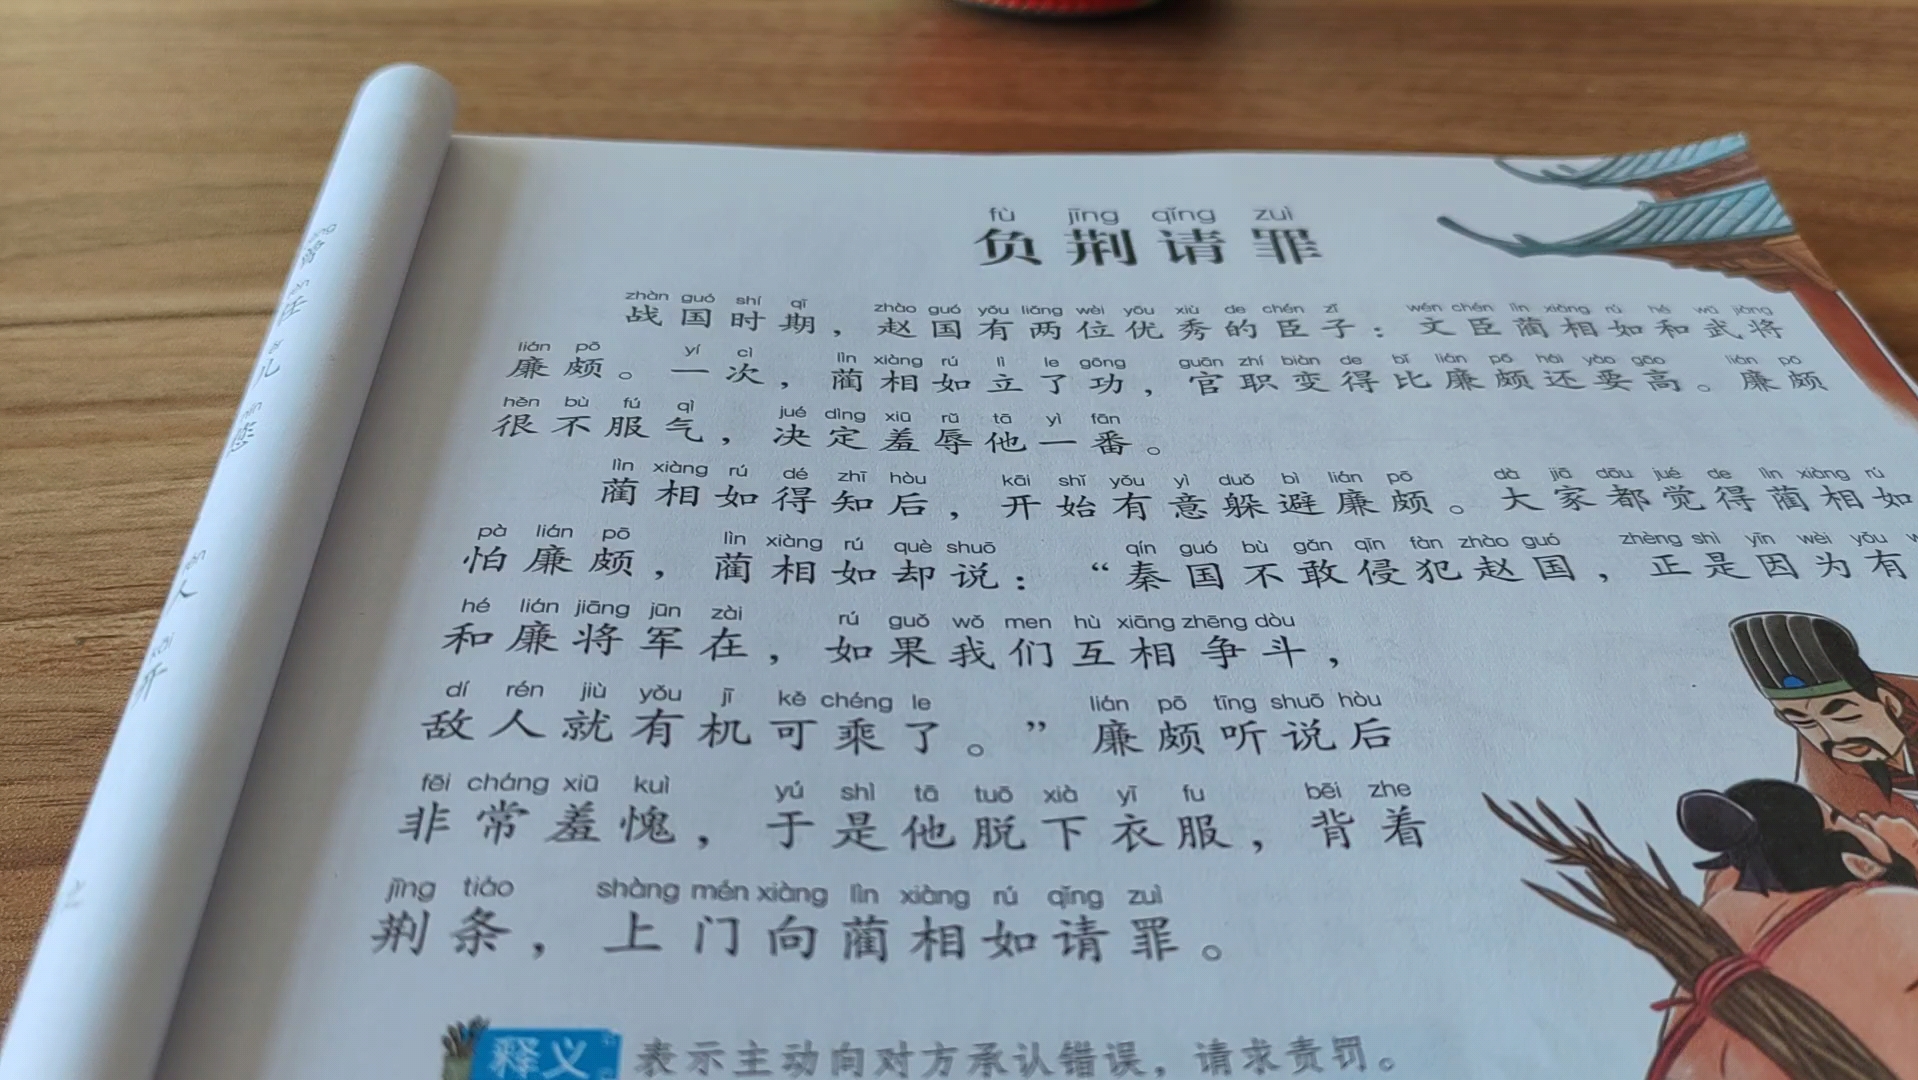 fù jīng qǐng zuì
负荆请罪
zhàn guó shí qī zhào guó yǒu liǎng wèi yōu xiù de chén zǐ wén chén lìn xiàng rú hé wǔ jiàng
战国时期，赵国有两位优秀的臣子：文臣蔺相如和武将
lián pō yí cì lìn xiàng rú lì le gōng guān zhí biàn de bǐ lián pō hái yào gāo lián pō
廉颇。一次，蔺相如立了功，官职变得比廉颇还要高。廉颇
hěn bù fú qì jué dìng xiū rǔ tā yì fān
很不服气，决定羞辱他一番。
lìn xiàng rú dé zhī hòu kāi shǐ yǒu yì duǒ bì lián pō dà jiā dōu jué de lìn xiàng rú
蔺相如得知后，开始有意躲避廉颇。大家都觉得蔺相如
pà lián pō lìn xiàng rú què shuō qín guó bù gǎn qīn fàn zhào guó zhèng shì yīn wèi yǒu
怕廉颇，蔺相如却说：“秦国不敢侵犯赵国，正是因为有
hé lián jiāng jūn zài rú guǒ wǒ men hù xiāng zhēng dòu
和廉将军在，如果我们互相争斗，
dí rén jiù yǒu jī kě chéng le lián pō tīng shuō hòu
敌人就有机可乘了。”廉颇听说后
fēi cháng xiū kuì yú shì tā tuō xià yī fu bēi zhe
非常羞愧，于是他脱下衣服，背着
jīng tiáo shàng mén xiàng lìn xiàng rú qǐng zuì
荆条，上门向蔺相如请罪。
释义 表示主动向对方承认错误，请求责罚。